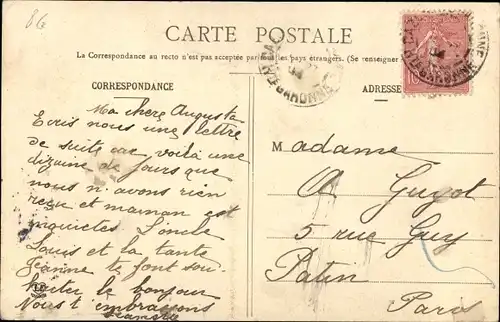 86
CARTE POSTALE
La Correspondance au recto n'est pas acceptée par tous les pays étrangers. (Se renseigner
CORRESPONDANCE
ADRESSE
Ma chère Augusta
Ecris nous une lettre
de suite car voilà une
dizaine de jours que
nous n'avons rien
reçu et maman est
inquiètes L'oncle
Louis et la tante
Jeanne te font sou-
haiter le bonjour
Nous t'embrassons
Madame
A Guyot
5 rue Guy
Patin
Paris
GARONNE
GARONNE
10